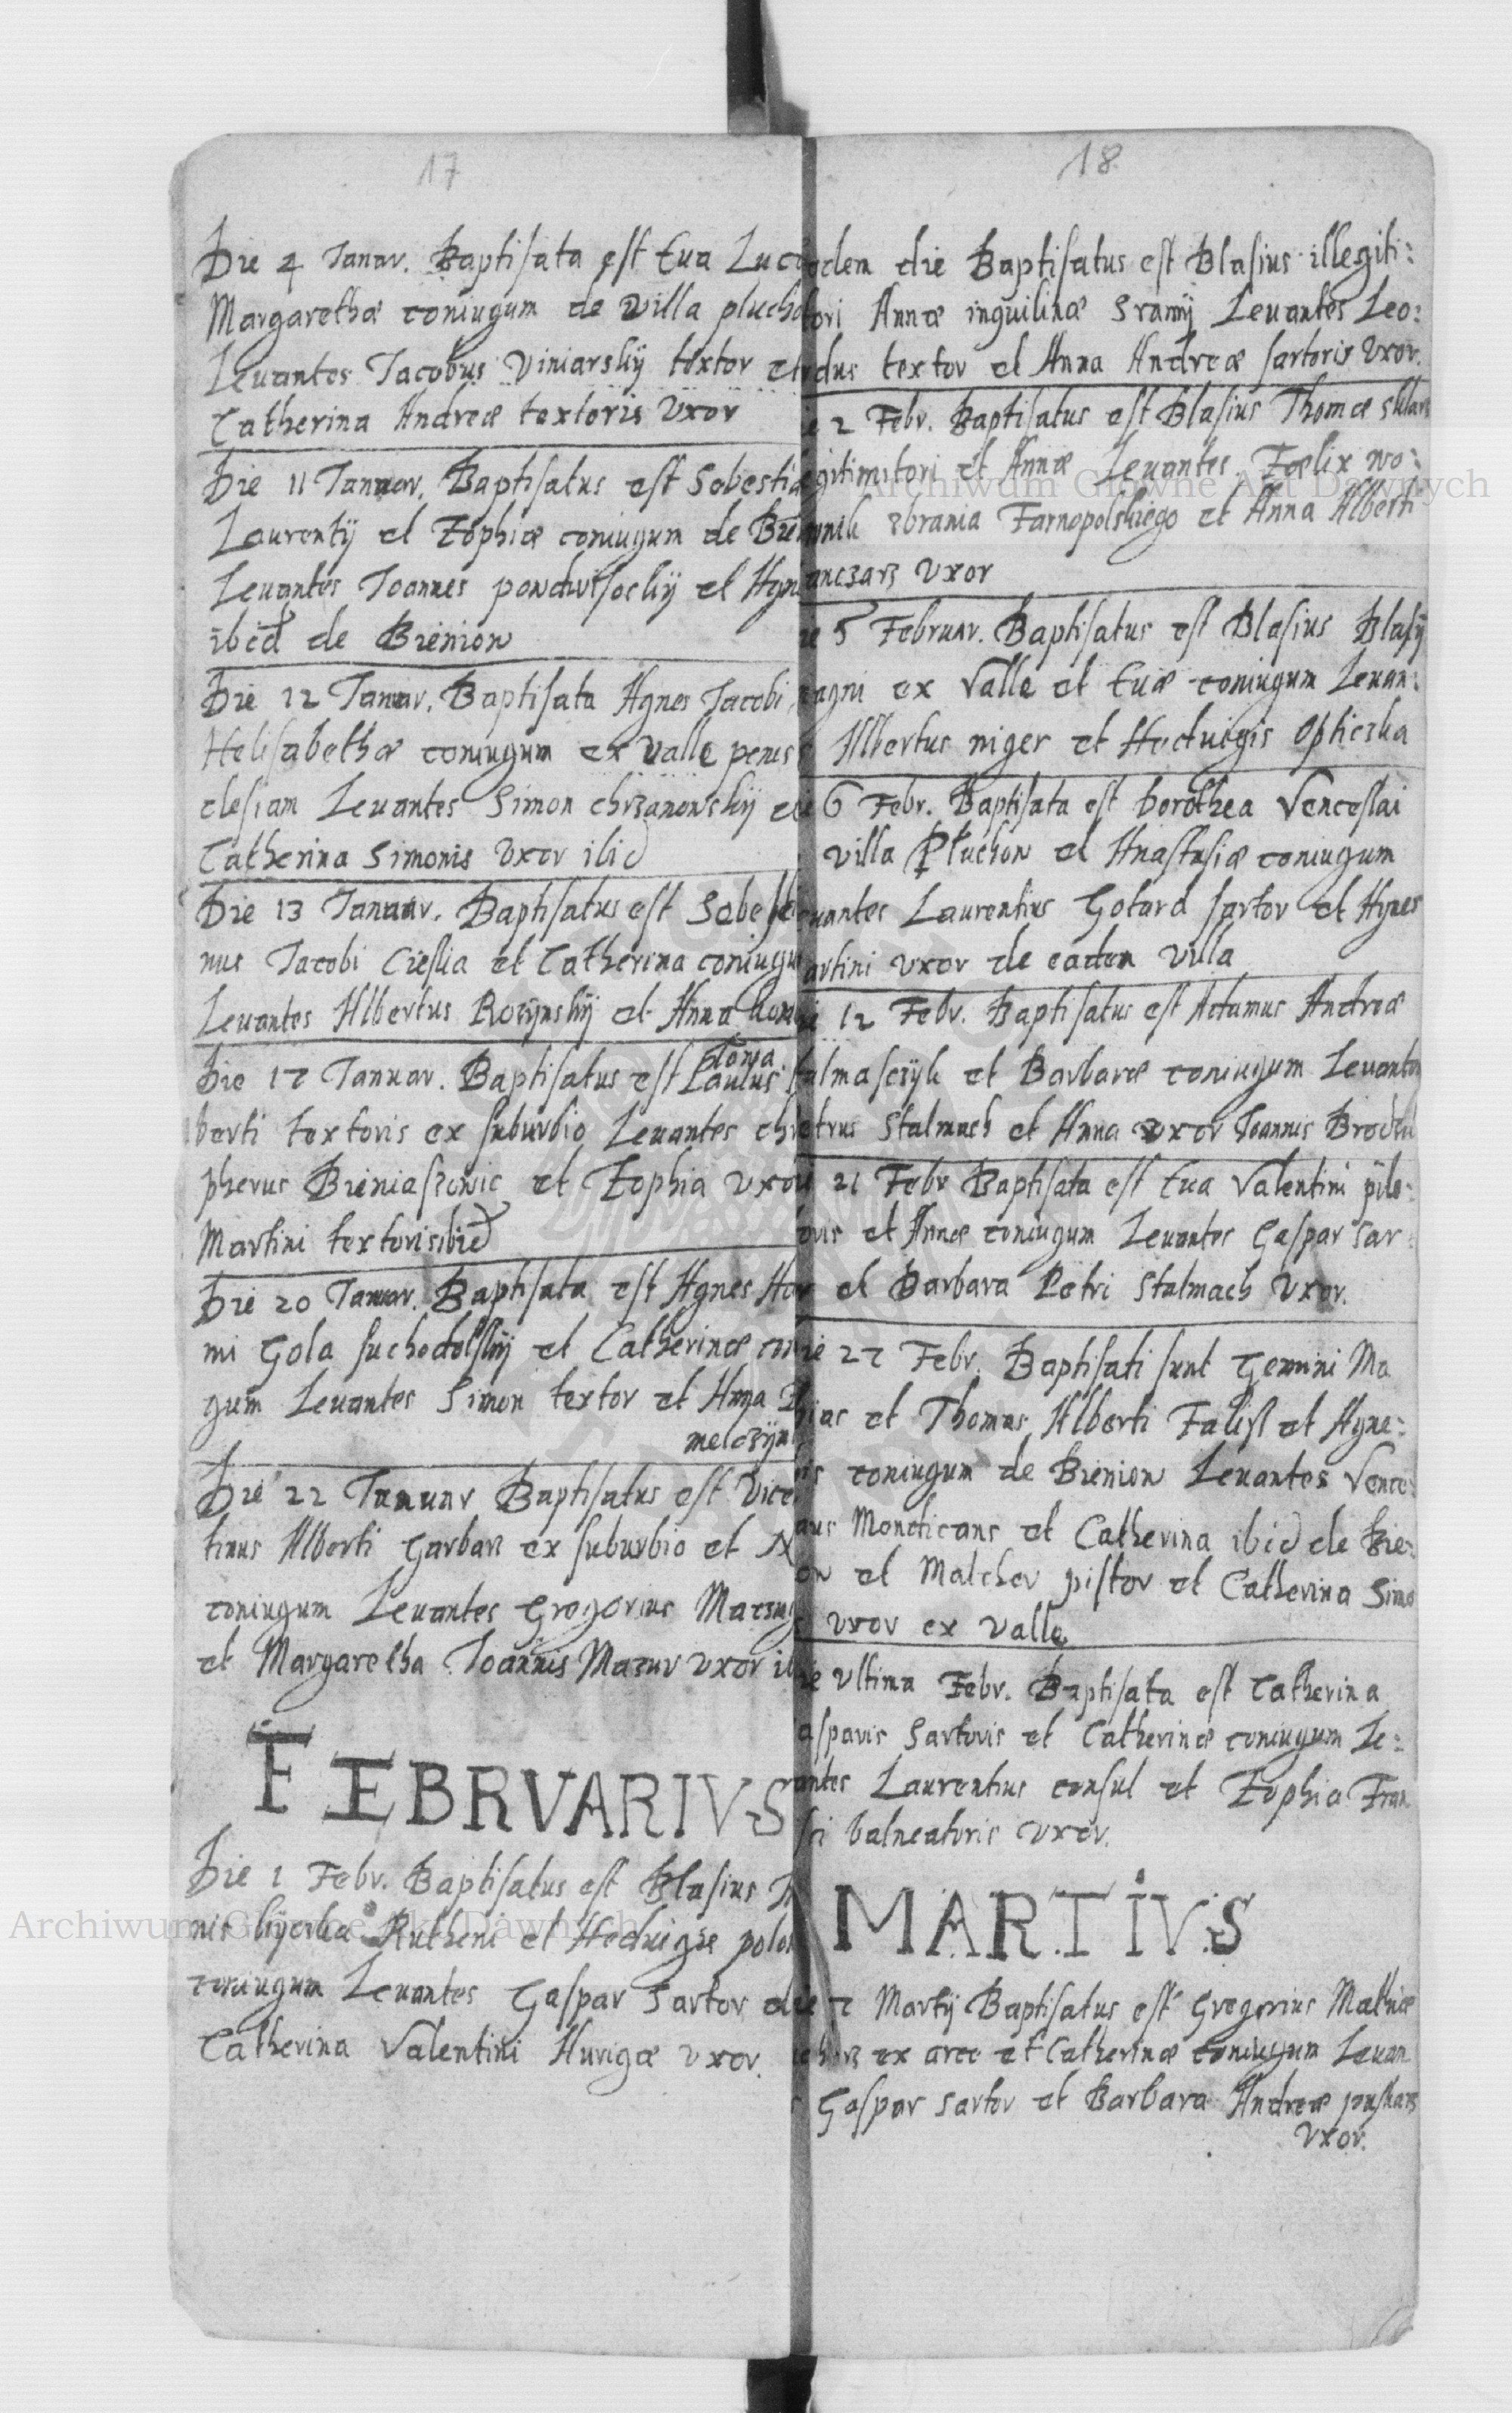 17
Die 4 Januar. Baptisata est Eua Luc
Margarethæ coniugum de villa plucho
Leuantes Jacobus Viniarskij textor et
Catherina Andreæ textoris Vxor
Die 11 Januar. Baptisatus est Sebesti
Laurentij et Zophiæ coniugum de Bie
Leuantes Joannes et Agn
ibid de Bienion
Die 12 Januar. Baptisata Agnes Jacobi
Helisabethæ coniugum ex valle penes
clesiam Leuantes Simon chrzanowskij et
Catherina Simonis Vxor ibid
Die 13 Januar. Baptisatus est Sebesti
nus Jacobi Cieslia et Catherina coniugu
Leuantes Albertus Rocynskij et Anna
Die 17 Januar. Baptisatus est Paulus
berti textoris ex suburbio Leuantes chr
pherus Bieniaszowic et Zophia vxor
Martini textoris ibid
Die 20 Januar. Baptisata est Agnes
mi Gola suchodolskij et Catherinæ
gum Leuantes Simon textor et Anna
melczÿn
Die 22 Januar Baptisatus est Vice
tinus Alberti Garbarz ex suburbio et
coniugum Leuantes Gregorius
et Margaretha Joannis Mazur vxor
FEBRVARIVS
Die 1 Febr. Baptisatus est Blasius
nis Rutheni et Heduigis polo
coniugum Leuantes Gaspar Sartor
Catherina Valentini Hurigæ vxor.
18
odem die Baptisatus est Blasius illegiti:
tori Annæ inquilinæ Leuantes Leo:
rdus textor et Anna Andreæ sartoris Vxor.
2 Febr. Baptisatus est Blasius Thomæ
et Annæ Leuantes Fælix wo:
zbrania Tarnopolskiego et Anna Alberti
anczarz vxor
5 Februar. Baptisatus est Blasius Blasij
agni ex Valle et Euæ coniugum Leuan:
Albertus niger et Heduigis
6 Febr. Baptisata est Dorothea Venceslai
villa Pluchow et Anastasiæ coniugum
uantes Laurentius Gotard sartor et Agnes
artini vxor de eadem villa
12 Febr. Baptisatus est Adamus Andreæ
talmasczyk et Barbaræ coniugum Leuantes
etrus Stalmach et Anna vxor Joannis
21 Febr Baptisata est Eua Valentini pile:
oris et Annæ coniugum Leuantes Gaspar sar
et Barbara Petri Stalmach Vxor.
27 Febr. Baptisati sunt Gemini Ma
hias et Thomas Alberti et Agne:
is coniugum de Bienion Leuantes Vence:
aus Mendicans et Catherina ibid de Bie:
on et Malcher pistor et Catherina Simo
vxor ex valle
ie Vltima Febr. Baptisata est Catherina
asparis Sartoris et Catherinæ coniugum Le:
antes Laurentius consul et Zophia Fran
sci balneatoris vxor.
MARTIVS
7 Martij Baptisatus est Gregorius Mathiæ
ex arce et Catherinæ coniugum Leuan
Gaspar sartor et Barbara Andreæ puskarz
Vxor.
Archiwum Główne Akt Dawnych
Archiwum Główne Akt Dawnych